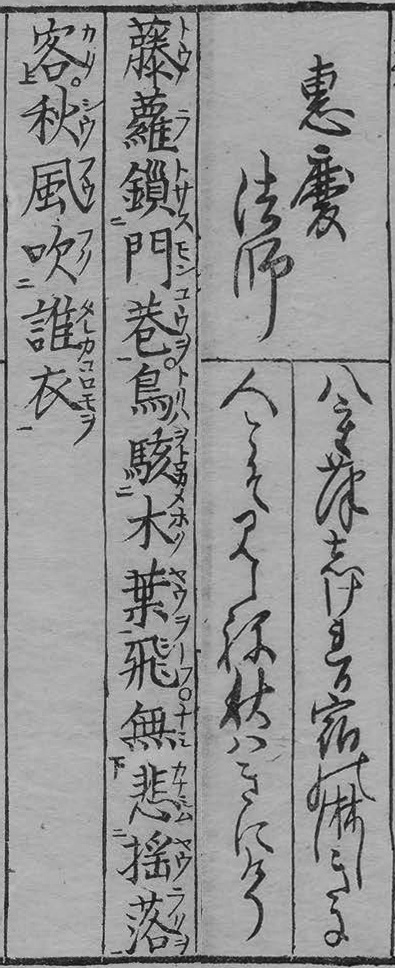 惠慶
法師
八重葎志け連る宿能淋しきに
人こそ見えね秋ハきにけり
藤蘿鎖門巷鳥駭木葉飛無悲揺落
客秋風吹誰衣